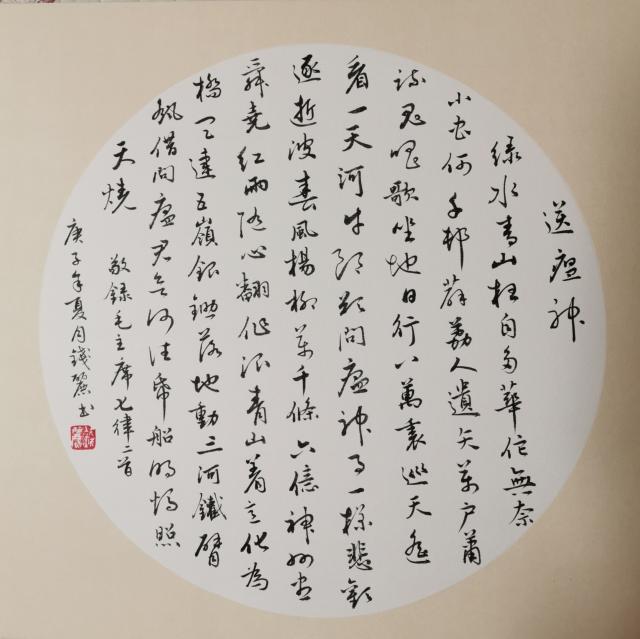 送瘟神
绿水青山枉自多華佗無奈
小虫何千邨薜荔人遺矢萬户蕭
疏鬼唱歌坐地日行八萬裏巡天遥
看一天河牛郎欲問瘟神事一樣悲歡
逐逝波春風楊柳萬千條六億神州盡
舜堯红雨随心翻作浪青山着意化為
橋天連五嶺銀鋤落地動三河鐵臂
摇借問瘟君欲何往帋船明燭照
天燒
敬錄毛主席七律二首
庚子年夏月錢麗书